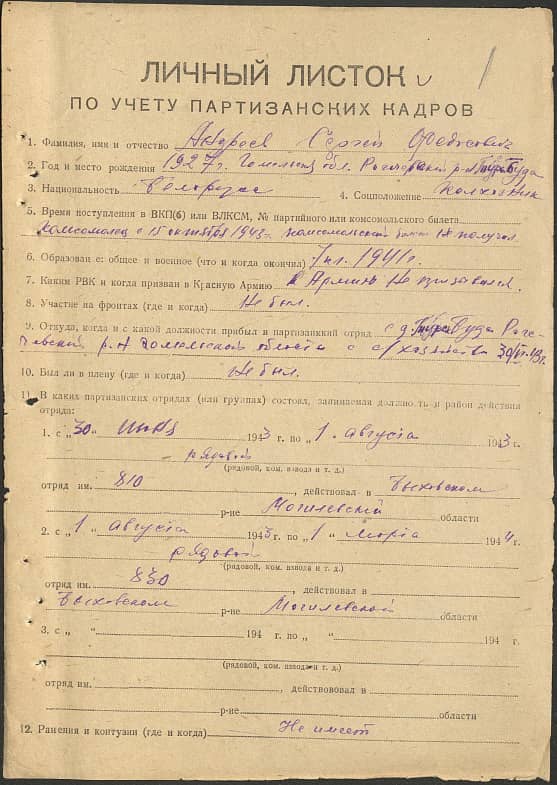 ЛИЧНЫЙ ЛИСТОК
ПО УЧЕТУ ПАРТИЗАНСКИХ КАДРОВ
1. Фамилия, имя и отчество Андреев Сергей
2. Год и место рождения 1927 г. Гомельск обл. р-н Буда
3. Национальность Белорус 4. Соцположение Колхозник
5. Время поступления в ВКП(б) или ВЛКСМ, № партийного или комсомольского билета
Комсомолец с 15 октября 1943 г. комсомольский билет не получал
6. Образование: общее и военное (что и когда окончил) 7 кл. 1941 г.
7. Каким РВК и когда призван в Красную Армию в Армию не призывался.
8. Участие на фронтах (где и когда) Не был.
9. Откуда, когда и с какой должности прибыл в партизанский отряд с д. Буда Рога-
чевский р-н Гомельской области с с/хозяйства
10. Был ли в плену (где и когда) Не был.
11. В каких партизанских отрядах (или группах) состоял, занимаемая должность и район действия
отряда:
1. с „30" июня 1943 г. по „1. августа 1943 г.
рядовой
(рядовой, ком. взвода и т. д.)
отряд им. 810, действовал в Быховском
р-не Могилевский области
2. с „1" августа 1943 г. по „1" марта 1944 г.
рядовой
(рядовой, ком. взвода и т. д.)
отряд им. 830, действовал в
Быховском р-не Могилевской области
3. с „ " 194 г. по „ " 194 г.
(рядовой, ком. взвода и т. д.)
отряд им. , действововал в
р-не области
12. Ранения и контузии (где и когда) Не имеет